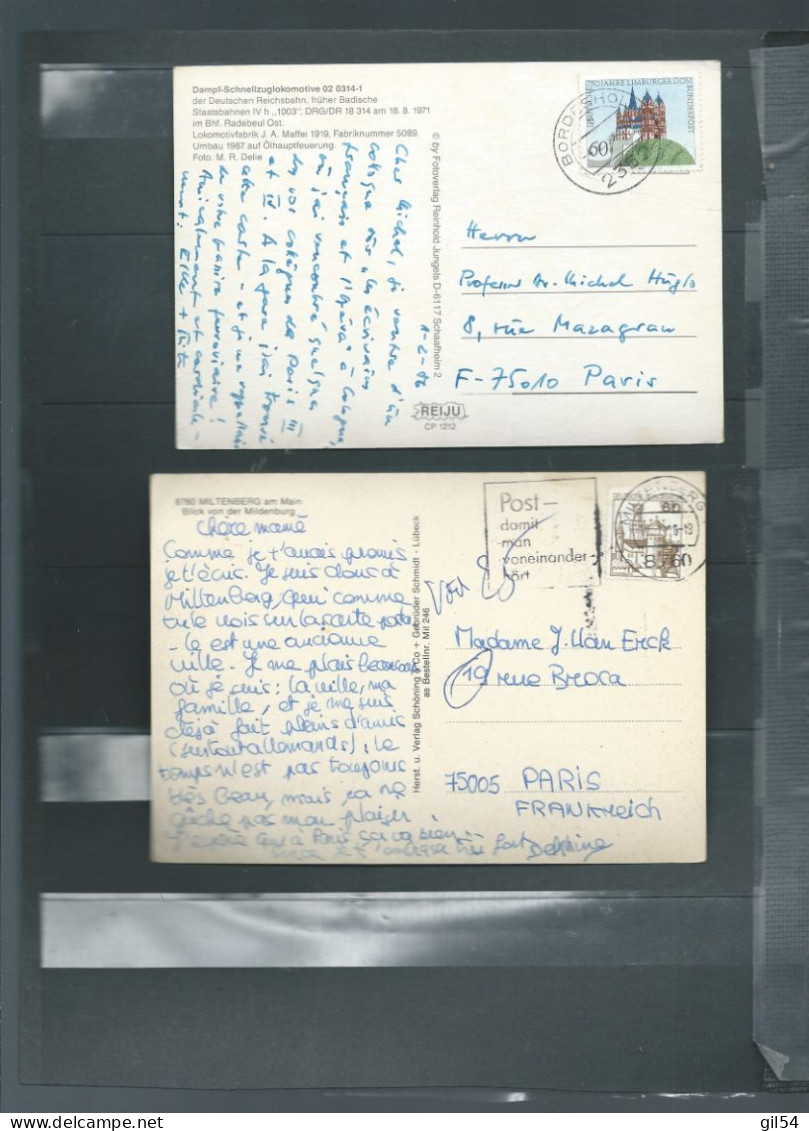 Dampf-Schnellzuglokomotive 02 0314-1
der Deutschen Reichsbahn, früher Badische
Staatsbahnen IV h „1003", DRG/DR 18 314 am 18. 6. 1971
im Bhf. Radebeul Ost.
Lokomotivfabrik J. A. Maffei 1919, Fabriknummer 5089.
Umbau 1967 auf Ölhauptfeuerung.
Foto: M. R. Delie
Cher Michel, je rentre d'un
colloque sur „les écrivains
français et l'opéra" à Cologne,
où j'ai rencontré quelques
de vos collègues de Paris III
et IV. A la gare j'ai trouvé
cette carte - et je me
de votre passion ferroviaire!
Amicalement et cordiale-
ment
© by Fotoverlag Reinhold Jungels D-6117 Schaafheim 2
REIJU
CP 1212
750 JAHRE LIMBURGER DOM
DEUTSCHE BUNDESPOST
60
BORDESHOLM
Herrn
Professor Dr. Michel Huglo
8, rue Mazagran
F-75010 Paris
8760 MILTENBERG am Main
Blick von der Mildenburg
chère mamé
Comme je t'avais promis
je t'écris. Je suis donc à
Miltenberg, qui comme
tu le vois sur la carte posta
-le est une ancienne
ville. Je me plais beaucoup
où je suis: la ville, ma
famille, et je me suis
déjà fait pleins d'amis
(surtout allemands); le
temps n'est pas toujours
très beau, mais, ça ne
gâche pas mon plaisir.
J'espère qu'à Paris ça va bien
je t'embrasse très fort Delphine
Herst. u. Verlag Schöning & Co + Gebrüder Schmidt - Lübeck
as Bestellnr. Mil 246
Post-
damit
man
voneinander
hört
MILTENBERG
8760
60
Madame J. Van Erck
19 rue Broca
75005 PARIS
FRANKREICH
delcampe.net
gil54